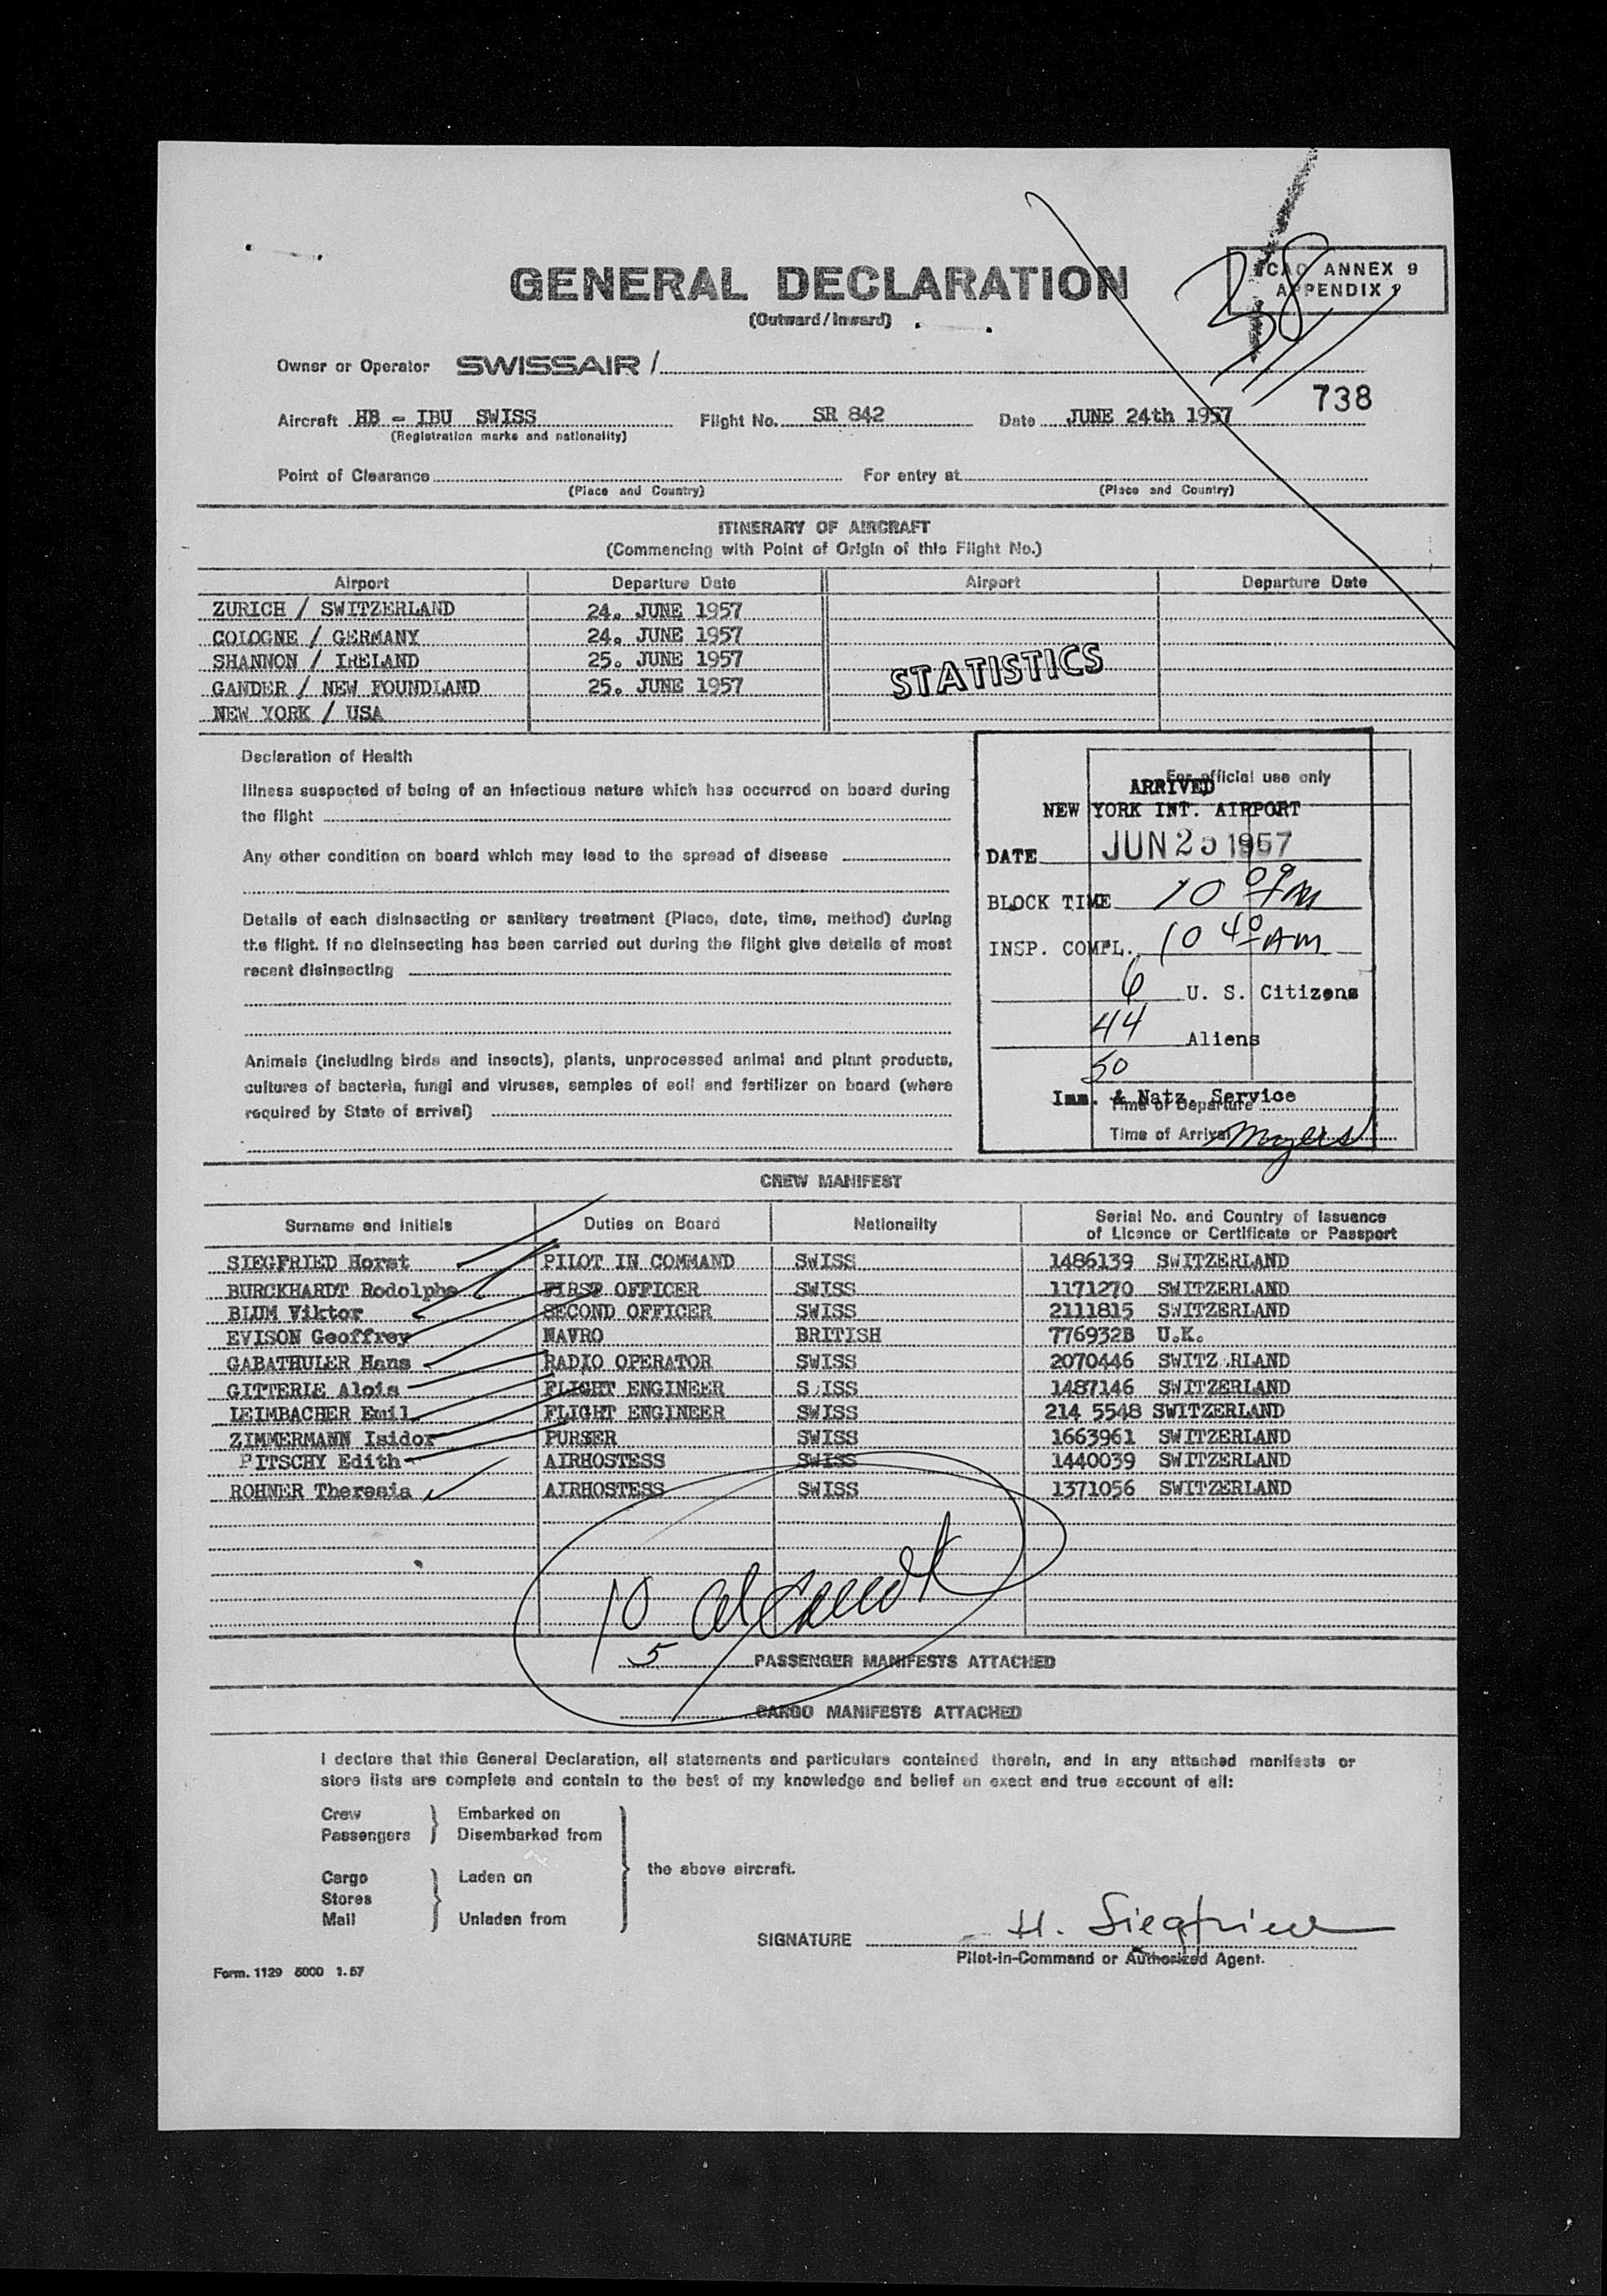 GENERAL DECLARATION
(Outward/Inward)
ICAO ANNEX 9
APPENDIX 1
38
Owner or Operator SWISSAIR /
738
Aircraft HB - IBU SWISS Flight No. SR 842 Date JUNE 24th 1957
(Registration marks and nationality)
Point of Clearance For entry at
(Place and Country) (Place and Country)
ITINERARY OF AIRCRAFT
(Commencing with Point of Origin of this Flight No.)
Airport Departure Date Airport Departure Date
ZURICH / SWITZERLAND 24. JUNE 1957
COLOGNE / GERMANY 24. JUNE 1957
SHANNON / IRELAND 25. JUNE 1957
GANDER / NEW FOUNDLAND 25. JUNE 1957
NEW YORK / USA
STATISTICS
Declaration of Health
Illness suspected of being of an infectious nature which has occurred on board during
the flight
Any other condition on board which may lead to the spread of disease
Details of each disinsecting or sanitary treatment (Place, date, time, method) during
the flight. If no disinsecting has been carried out during the flight give details of most
recent disinsecting
Animals (including birds and insects), plants, unprocessed animal and plant products,
cultures of bacteria, fungi and viruses, samples of soil and fertilizer on board (where
required by State of arrival)
For official use only
ARRIVED
NEW YORK INT. AIRPORT
DATE JUN 25 1957
BLOCK TIME 10 09 AM
INSP. COMPL. 10 40 AM
6 U. S. Citizens
44 Aliens
50
Imm. & Natz. Service
Time of Departure
Time of Arrival Myers
CREW MANIFEST
Surname and Initials Duties on Board Nationality Serial No. and Country of Issuance
of Licence or Certificate or Passport
SIEGFRIED Horst PILOT IN COMMAND SWISS 1486139 SWITZERLAND
BURCKHARDT Rodolphe FIRST OFFICER SWISS 1171270 SWITZERLAND
BLUM Viktor SECOND OFFICER SWISS 2111815 SWITZERLAND
EVISON Geoffrey NAVRO BRITISH 776932B U.K.
GABATHULER Hans RADIO OPERATOR SWISS 2070446 SWITZ RLAND
GITTERLE Alois FLIGHT ENGINEER S ISS 1487146 SWITZERLAND
LEIMBACHER Emil FLIGHT ENGINEER SWISS 214 5548 SWITZERLAND
ZIMMERMANN Isidor PURSER SWISS 1663961 SWITZERLAND
PITSCHY Edith AIRHOSTESS SWISS 1440039 SWITZERLAND
ROHNER Theresia AIRHOSTESS SWISS 1371056 SWITZERLAND
10
5 PASSENGER MANIFESTS ATTACHED
CARGO MANIFESTS ATTACHED
I declare that this General Declaration, all statements and particulars contained therein, and in any attached manifests or
store lists are complete and contain to the best of my knowledge and belief an exact and true account of all:
Crew Embarked on
Passengers Disembarked from
the above aircraft.
Cargo Laden on
Stores
Mail Unladen from
SIGNATURE H. Siegfried
Pilot-in-Command or Authorized Agent.
Form. 1129 5000 1.57